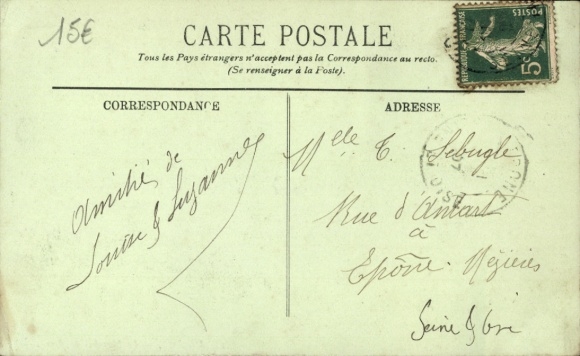 15€
CARTE POSTALE
Tous les Pays étrangers n'acceptent pas la Correspondance au recto.
(Se renseigner à la Poste).
REPUBLIQUE FRANÇAISE
POSTES
5c
CORRESPONDANCE
ADRESSE
Amitiés de
Louise & Suzanne
Melle C. Lebugle
Rue d'
à
Epône-Mézières
Seine & Oise